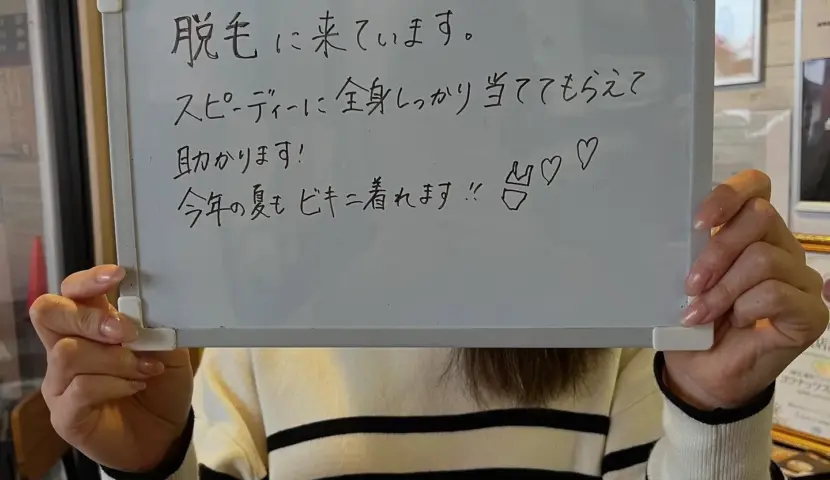 脱毛に来ています。
スピーディーに全身しっかり当ててもらえて
助かります!
今年の夏も ビキニ着れます!! ♡ ♡